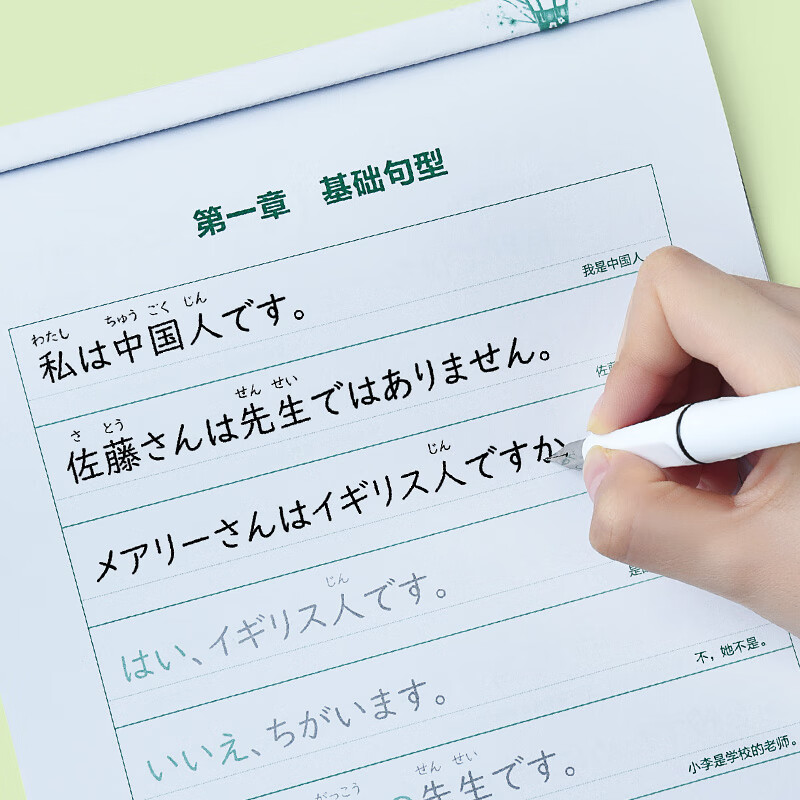 第一章 基础句型
我是中国人
わたし ちゅう ごく じん
私は中国人です。
佐
さ とう せん せい
佐藤さんは先生ではありません。
じん
メアリーさんはイギリス人ですか
是
じん
はい、イギリス人です。
不，她不是。
いいえ、ちがいます。
小李是学校的老师。
がっこう せん せい
先生です。